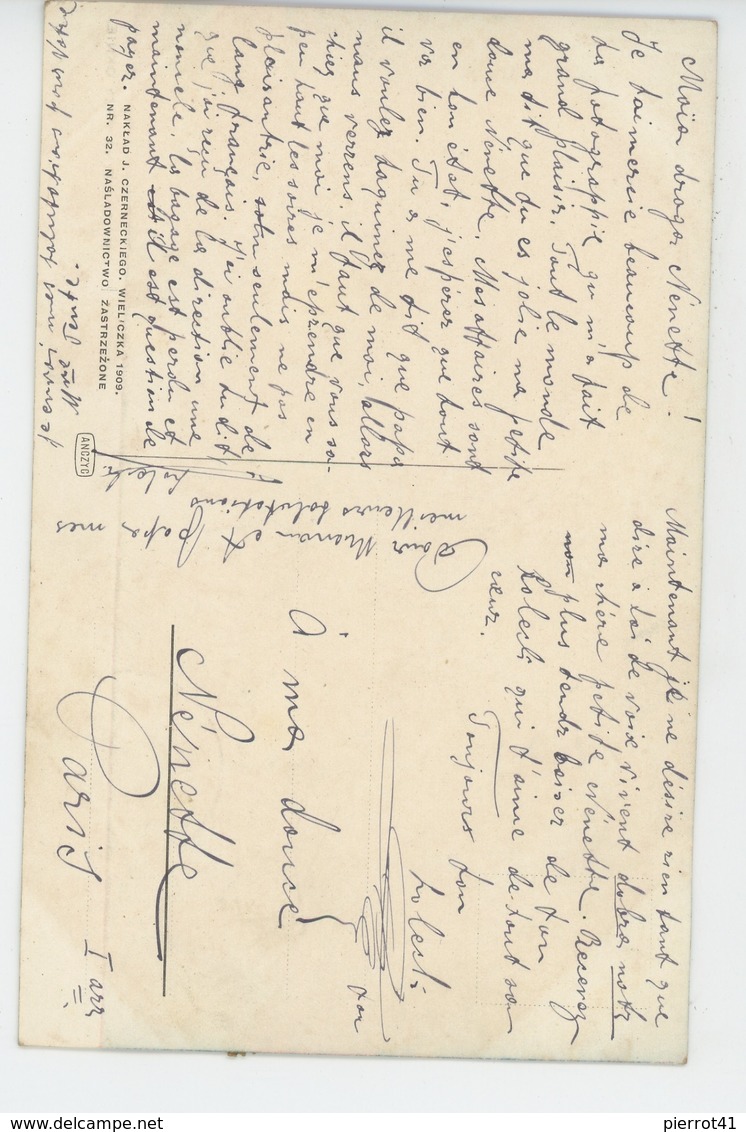 Moïa droga, Nenette!
Je taimercie beaucoup de
ta potograppie qu m'a fait
grand plaisir. Tout le monde
me dit que du es jolie ma petite
douce Nénette. Mes affaires sont
en bon état, j'espérez que tout
va bien. Tu a me dit que papa
il voulez taquinez de moi, allors
nous verrens, il faut que vous sa-
chiez que moi je m'eprendre en
peu tout les soires mais ne pas
plaisantrie, sotin seulement de
lang français. J'ai oublié tu dit,
que j'ai reçu de la direction une
nouvele, les bagage est perdu et
maintenant il est question de
payer.
je suis
Mme
NAKŁAD J. CZERNECKIEGO, WIELICZKA 1909.
NR. 32. NAŚLADOWNICTWO ZASTRZEŻONE
ANCZYC
Maintenant je ne désire rien tant que
dire à toi de voix vivent dobra notz
ma chère petite Nénette. Recevez
non plus tendr baiser de ton
Lolecti qui t'aime de tout son
cœur.
Toujours ton
Lolecti
Pour Maman et Papa mes
meilleurs salutations
Lolecti.
à ma douce
Nénette
Paris
I arr
ton
pierrot41